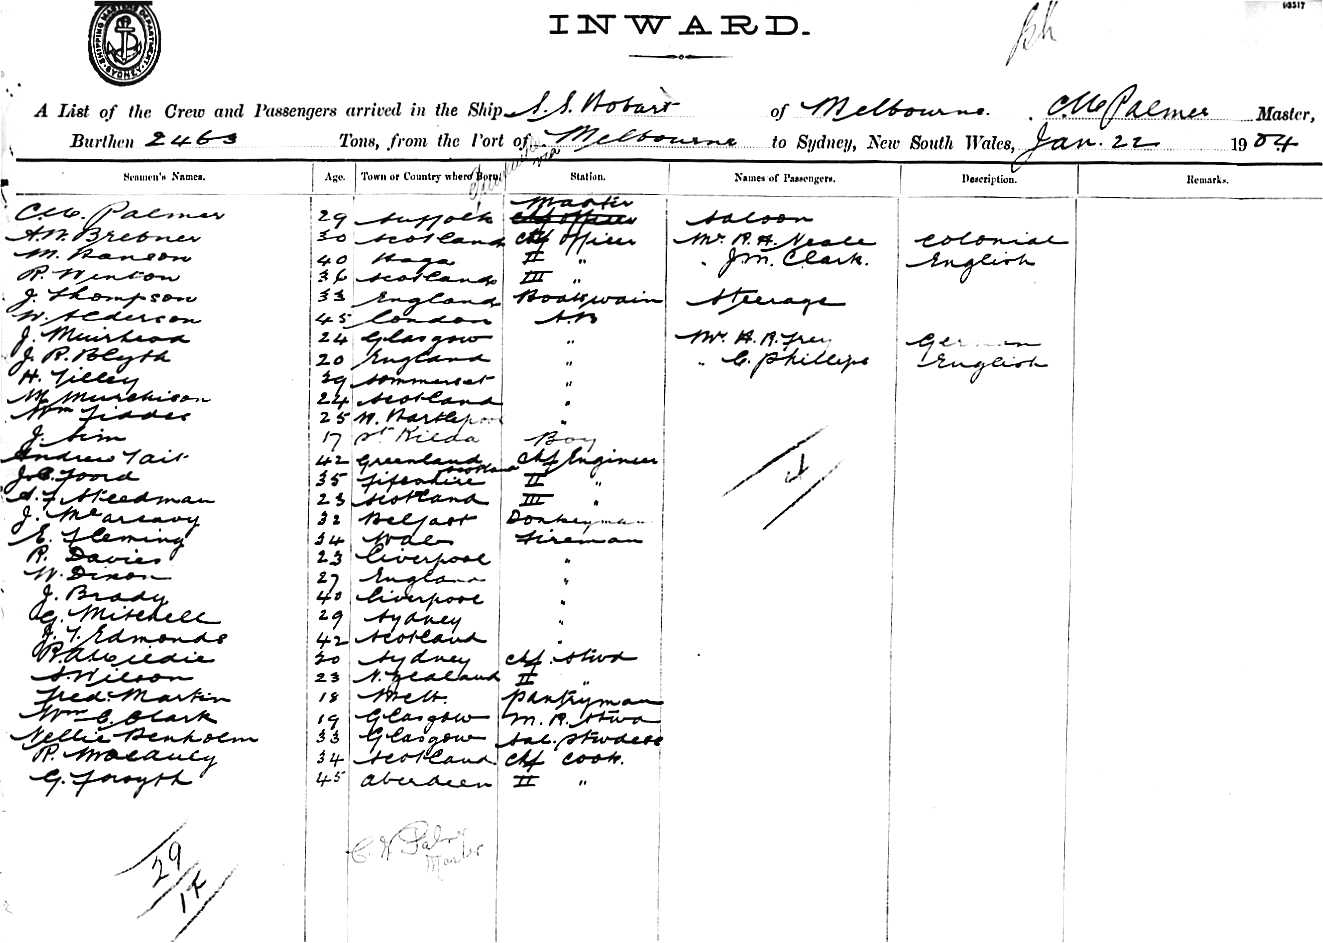 93517
SHIPPING MASTERS DEPARTMENT SYDNEY
INWARD.
A List of the Crew and Passengers arrived in the Ship S.S. Hobart of Melbourne. C W Palmer Master,
Burthen 2463 Tons, from the Port of Melbourne to Sydney, New South Wales, Jan. 22 1904
via
Seamen's Names. Age. Town or Country where Born. Station. Names of Passengers. Description. Remarks.
Master
C.W. Palmer 29 Suffolk Chf Officer Saloon
A.W. Brebner 30 Scotland Chf Officer Mr. R. H. Neale Colonial
M. Hanson 40 Haga II " " J M. Clark. English
R. Winton 36 Scotland III "
J. Thompson 33 England Boatswain Steerage
W. Alderson 45 London A.B
J. Muirhead 24 Glasgow " Mr. H. R. Frey German
J. R. Blyth 20 England " " C. Phillips English
H. Tilley 39 Sommerset "
M. Murchison 24 Scotland "
Wm Fiddes 25 W. Hartlepool "
J. Sim 17 St Kilda Boy
Andrew Tait 42 Greenland Chf Engineer
Scotland
J. C. Foord 35 Fifeshire II "
S. F. Steedman 23 Scotland III "
J. McAreavy 32 Belfast Donkeyman
E. Fleming 34 Wales Fireman
R. Davies 23 Liverpool "
W. Dixon 27 England "
J. Brady 40 Liverpool "
G. Mitchell 29 Sydney "
J. T. Edmonds 42 Scotland "
20 Sydney Chf. Stwd
S. Wilson 23 N. Zealand II "
Fred. Martin 18 Melb. Pantryman
Wm C. Clark 19 Glasgow M. R. Stwd
Nellie Denholm 33 Glasgow Sal. Stwdess
R. Macauly 34 Scotland Chf Cook.
G. Forsyth 45 Aberdeen II "
4
C W Palmer
Master
29
14